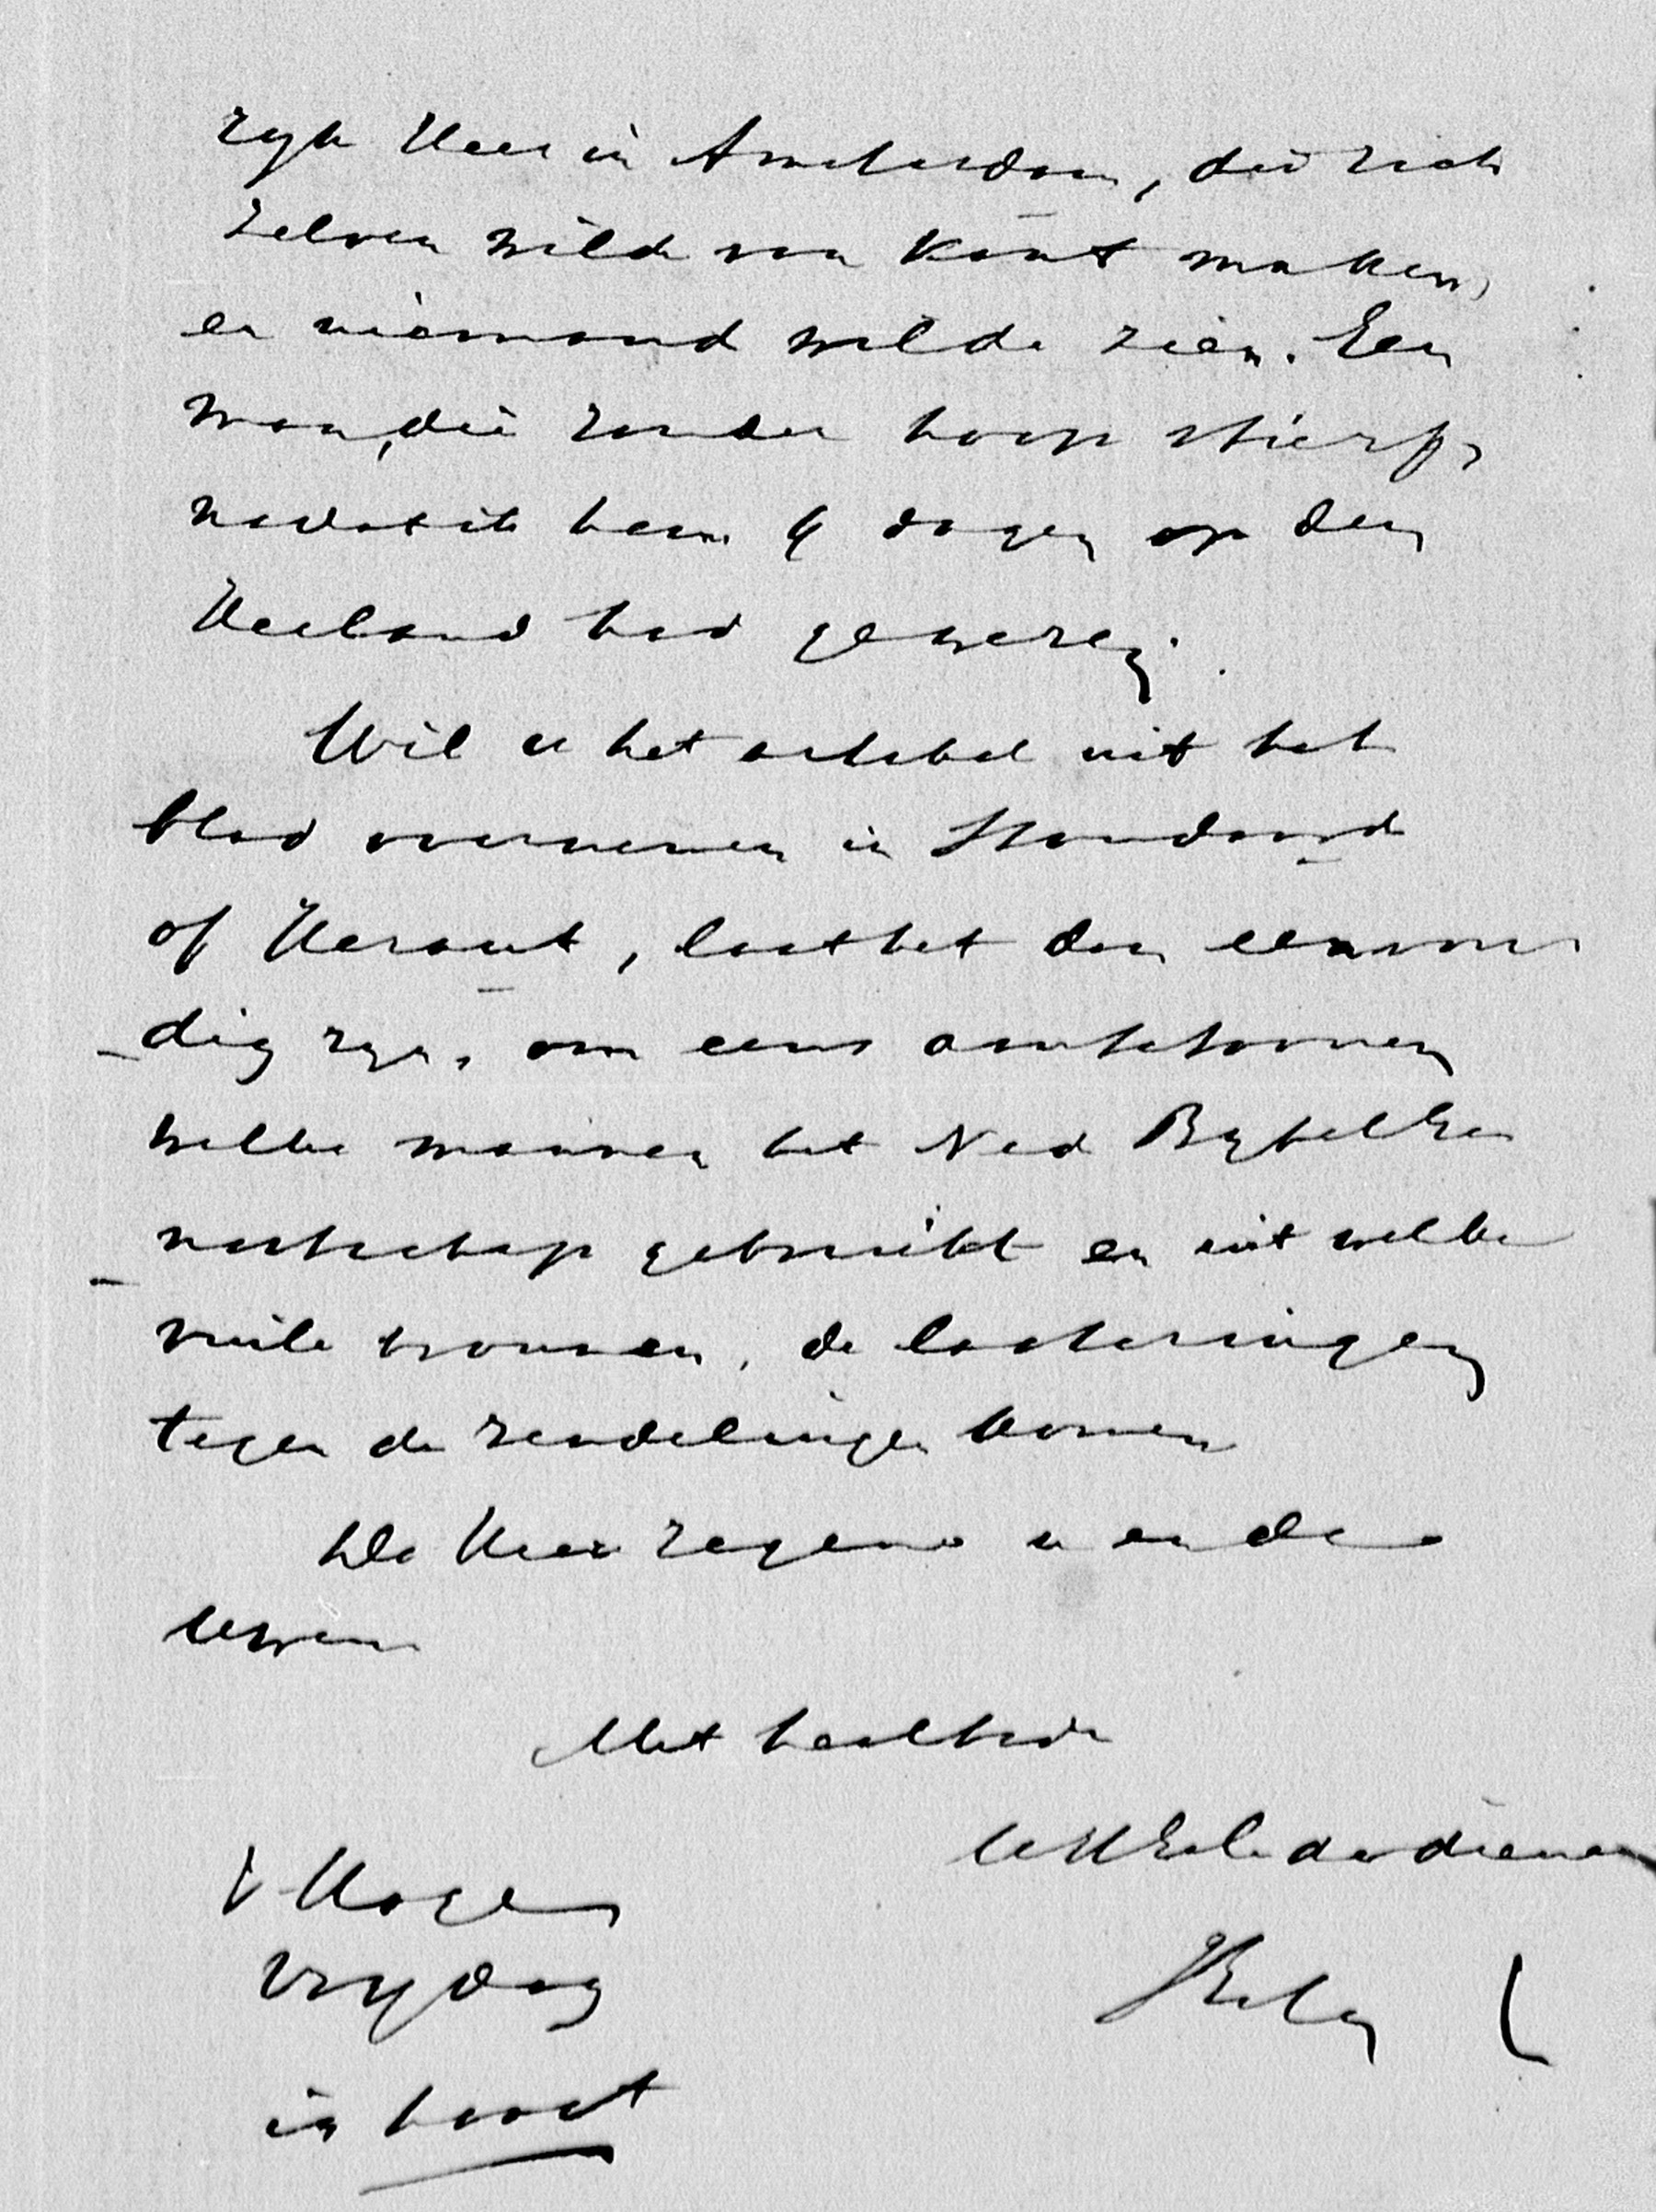 ryk Heer in Amsterdam, die zich
zelven wilde van kant maken,
en niemand wilde zien. Een
man, die zonder hoop stierf,
nadat ik hem 4 dagen op den
Heiland had gewezen.
Wil u het artikel uit het
blad overnemen in Standaard
of Heraut, laat het dan eenvou
dig zyn, om eens aantetoonen
welke mannen het Ned Bybel Ge
nootschap gebruikt en uit welke
vuile bronnen, de lasteringen
tegen de zendelingen komen
De Heer zegene u en de
uwen
Met heilbede
UWEd. dw dienaar
s Hage
Vrydag
in haast